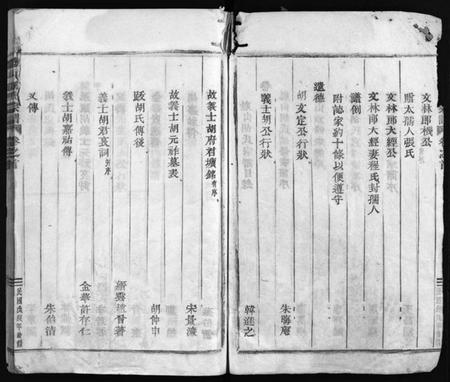 文林郎機公
貤太孺人張氏
文林郎大經公
文林郎大經妻程氏封孺人
譜例
附誌家約十條以便遵守
道德
胡文定公行狀 朱晦庵
義士胡公行狀 韓進之
故義士胡府君壙銘有序 宋景濂
故義士胡元祚墓表 胡仲申
跋胡氏傳後
義士胡君哀詞有序
義士胡嘉祐傳 金華許存仁
又傳 朱伯清
民國庚辰年重修